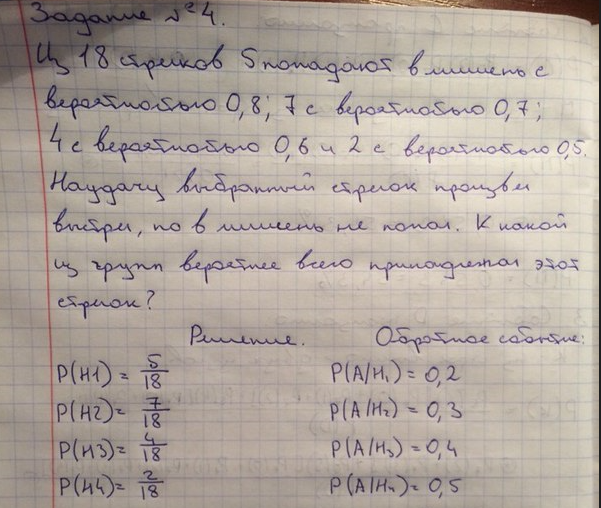 Задание №4.
Из 18 стрелков 5 попадают в мишень с
вероятностью 0,8; 7 с вероятностью 0,7;
4 с вероятностью 0,6 и 2 с вероятностью 0,5.
Наудачу выбранный стрелок произвел
выстрел, но в мишень не попал. К какой
из групп вероятнее всего принадлежал этот
стрелок?
Решение. Обратное событие:
P(H1) = 5/18 P(A/H₁) = 0,2
P(H2) = 7/18 P(A/H₂) = 0,3
P(H3) = 4/18 P(A/H₃) = 0,4
P(H4) = 2/18 P(A/H₄) = 0,5